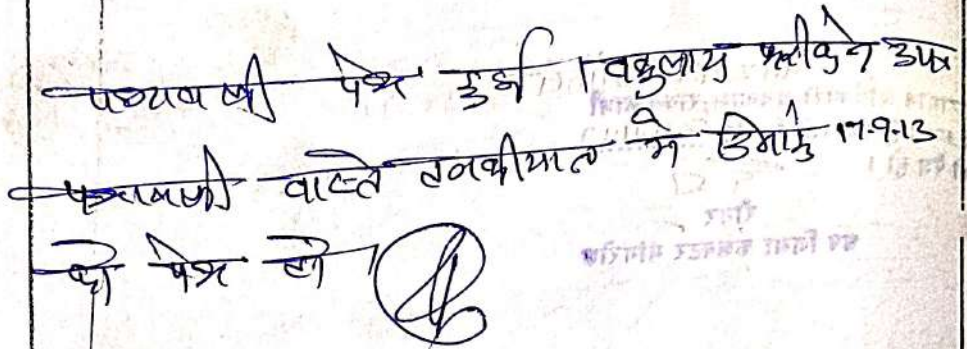 पत्रावली पेश हुई । वकुलाय फरीकेन उप०
पत्रावली वास्ते तनकीयात में दिनांक 17-9-13
को पेश हो ।